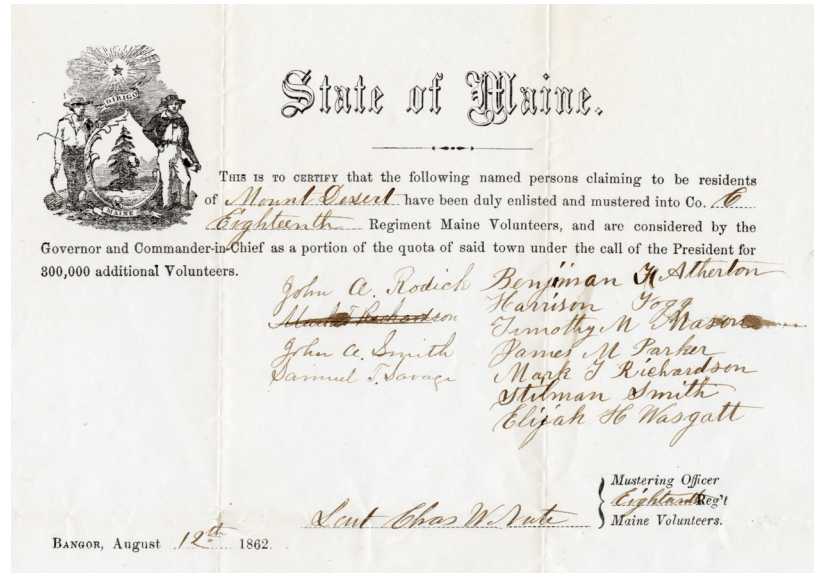 DIRIGO
MAINE
State of Maine.
THIS IS TO CERTIFY that the following named persons claiming to be residents
of Mount Desert have been duly enlisted and mustered into Co. C
Eighteenth Regiment Maine Volunteers, and are considered by the
Governor and Commander-in-Chief as a portion of the quota of said town under the call of the President for
300,000 additional Volunteers.
John A. Rodick
Mark T Richardson
John A. Smith
Samuel T. Savage
Benjiman H Atherton
Harrison Fogg
Timothy M Mason
James M Parker
Mark T Richardson
Stilman Smith
Elijah H Wasgatt
Mustering Officer
Eighteenth Reg't
Maine Volunteers.
Leut Chas W. Nute
BANGOR, August 12th 1862.